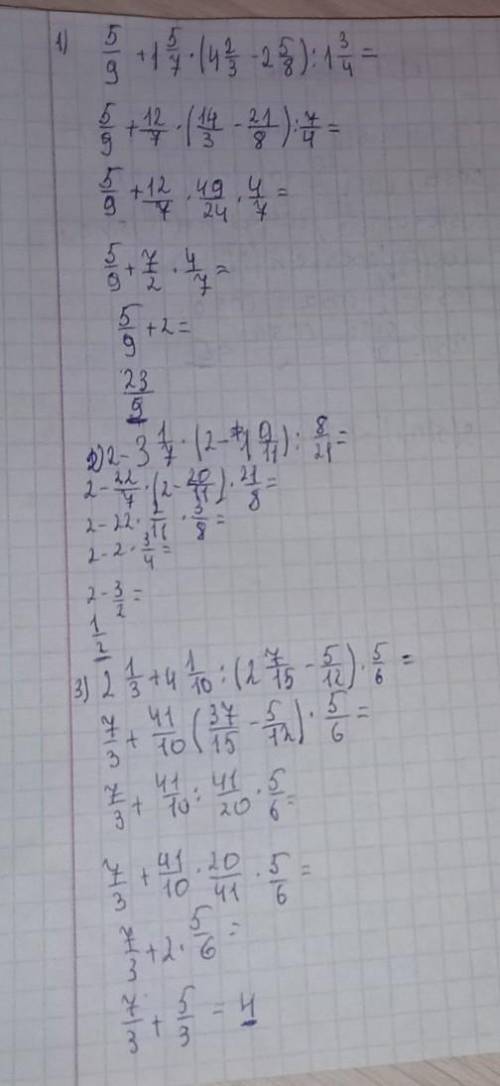 1) 5/9 + 1 5/7 · (4 2/3 - 2 5/8) : 1 3/4 =
5/9 + 12/7 · (14/3 - 21/8) : 7/4 =
5/9 + 12/7 · 49/24 · 4/7 =
5/9 + 7/2 · 4/7 =
5/9 + 2 =
23/9
2) 2 - 3 1/7 · (2 - 1 9/11) : 8/21 =
2 - 22/7 · (2 - 20/11) · 21/8 =
2 - 22 · 2/11 · 3/8 =
2 - 2 · 3/4 =
2 - 3/2 =
1/2
3) 2 1/3 + 4 1/10 : (2 7/15 - 5/12) · 5/6 =
7/3 + 41/10 (37/15 - 5/12) · 5/6 =
7/3 + 41/10 : 41/20 · 5/6 =
7/3 + 41/10 · 20/41 · 5/6 =
7/3 + 2 · 5/6 =
7/3 + 5/3 = 4